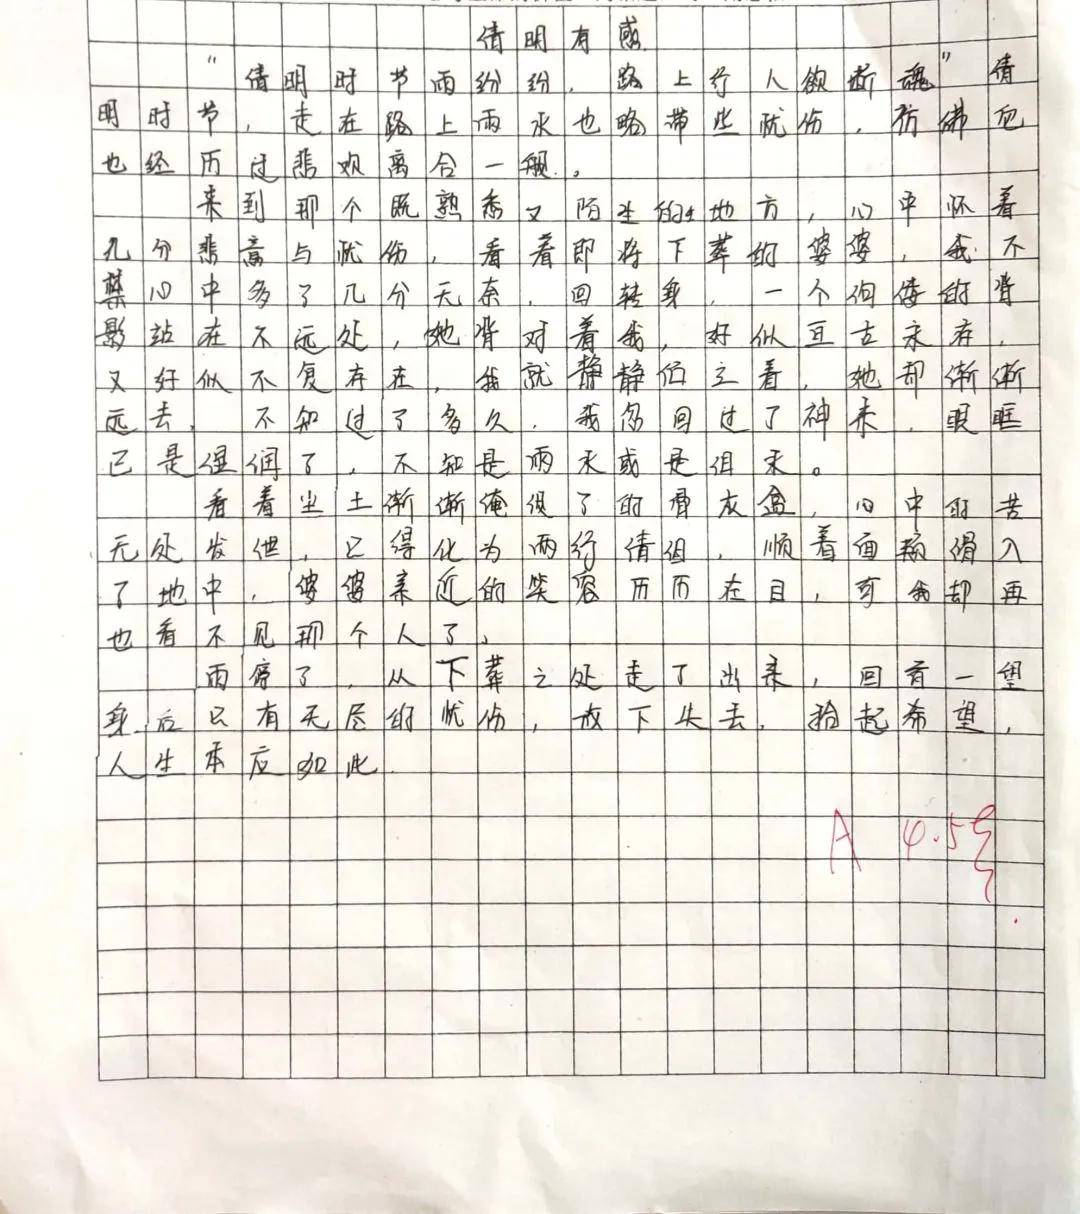 清明有感
“清明时节雨纷纷，路上行人欲断魂”清
明时节，走在路上雨水也略带些忧伤，彷佛它
也经历过悲欢离合一般。
来到那个既熟悉又陌生的地方，心中怀着
几分悲哀与忧伤，看着即将下葬的婆婆，我不
禁心中多了几分无奈，回转身，一个佝偻的背
影站在不远处，她背对着我，好似亘古永存，
又好似不复存在，我就静静伫立着，她却渐渐
远去，不知过了多久，我忽回过了神来，眼眶
已是湿润了，不知是雨水或是泪水。
看着尘土渐渐掩没了的骨灰盒，心中的苦
无处发泄，已得化为两行清泪，顺着面颊滑入
了地中，婆婆亲近的笑容历历在目，可我却再
也看不见那个人了，
雨停了，从下葬之处走了出来，回首一望
身后只有无尽的忧伤，放下失去，拾起希望，
人生本应如此.
A 4.5